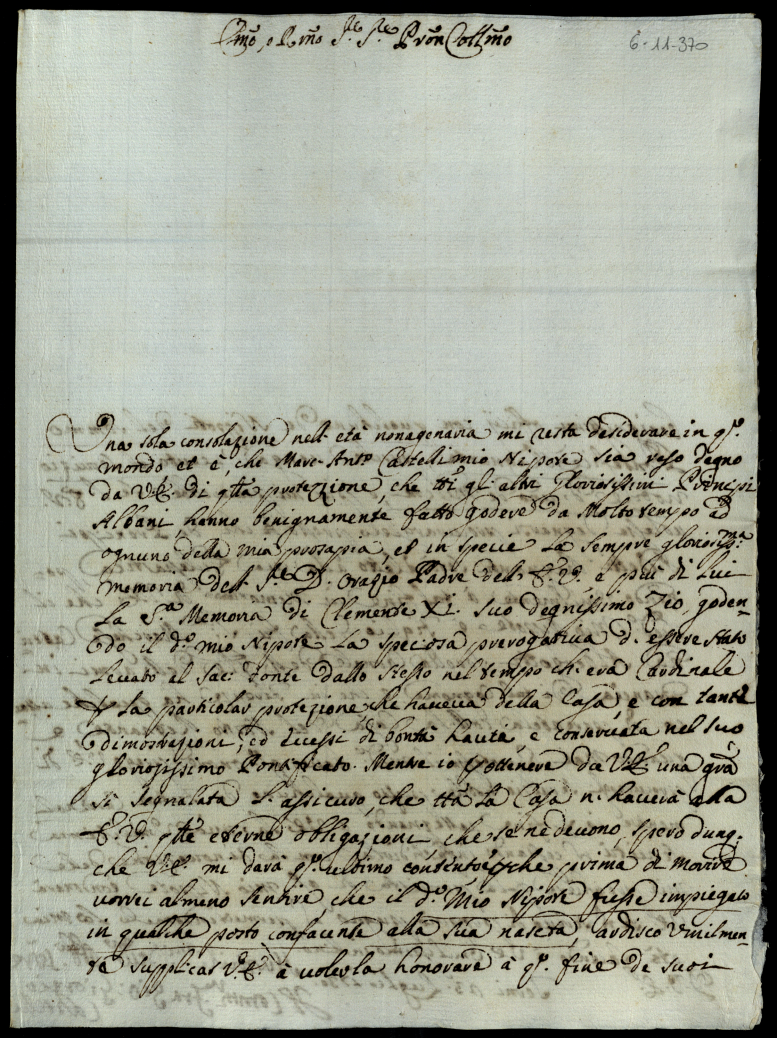 Emo, e Rmo Sre Sre Pron Collmo
6-11-370
Una sola consolazione nell. età nonagenaria mi resta desiderare in qto.
mondo et è, che Marc-Anto. Castelli mio Nipote sia reso degno
da V.E. di qlla protezione, che tti gl. altri Gloriosissimi Principi
Albani, hanno benignamente fatto godere da molto tempo ad
ognuno della mia prosapia, et in specie la sempre gloriosissma.
memoria del Sre. D. Orazio Padre dell. E.V., e più di lui
la Sta. Memoria di Clemente XI. suo degnissimo Zio, goden-
do il do. mio Nipote la speciosa prerogativa d. essere stato
levato al Sac: Fonte dallo stesso nel tempo ch. era Cardinale
p la particolar protezione, che haveva della Casa, e con tante
dimostrazioni, ed eccessi di bontà hauta, e conservata nel suo
gloriosissimo Pontificato. Mentre io p ottenere da V.E. una gra
sì segnalata l. assicuro, che tta la Casa n. haverà alla
E.V. qlle eterne obligazioni, che se ne devono, spero dunq.
che V.E. mi darà qto. ultimo contento, che prima di morire
vorrei almeno sentire, che il do. Mio Nipote fusse impiegato
in qualche posto confacente alla sua nascita, ardisco umilmen-
te supplicar V.E. à volerla honorare à qto. fine de suoi